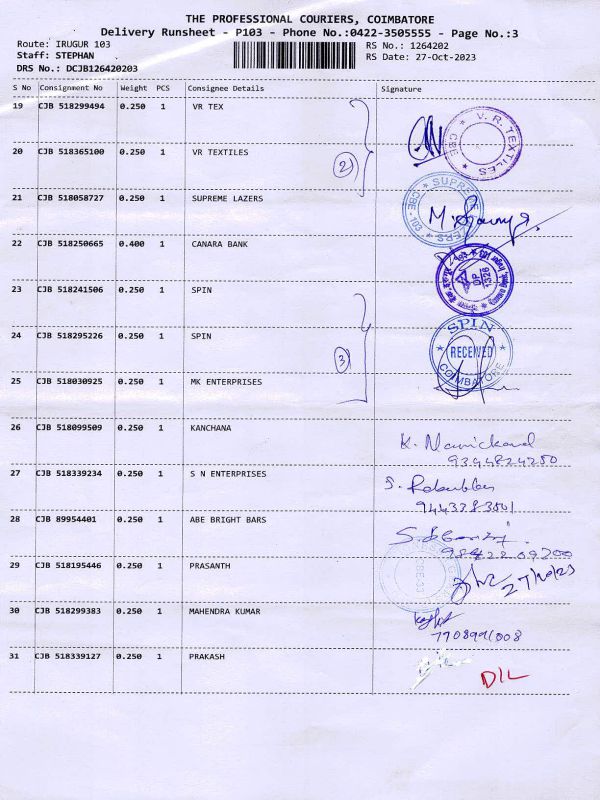 THE PROFESSIONAL COURIERS, COIMBATORE
Delivery Runsheet - P103 - Phone No.:0422-3505555 - Page No.:3
Route: IRUGUR 103
RS No.: 1264202
Staff: STEPHAN
RS Date: 27-Oct-2023
DRS No.: DCJB126420203
S No Consignment No Weight PCS Consignee Details Signature
19 CJB 518299494 0.250 1 VR TEX
V. R. TEXTILES CBE
20 CJB 518365100 0.250 1 VR TEXTILES
2
21 CJB 518058727 0.250 1 SUPREME LAZERS
SUPREME CBE - 103
22 CJB 518250665 0.400 1 CANARA BANK
DP 1326
23 CJB 518241506 0.250 1 SPIN
24 CJB 518295226 0.250 1 SPIN
3
SPIN RECEIVED COIMBATORE
25 CJB 518030925 0.250 1 MK ENTERPRISES
26 CJB 518099509 0.250 1 KANCHANA
K. Manickand
9344824250
27 CJB 518339234 0.250 1 S N ENTERPRISES
9443383801
28 CJB 89954401 0.250 1 ABE BRIGHT BARS
9842209200
29 CJB 518195446 0.250 1 PRASANTH
27/10/23
30 CJB 518299383 0.250 1 MAHENDRA KUMAR
7708991008
31 CJB 518339127 0.250 1 PRAKASH
D/L